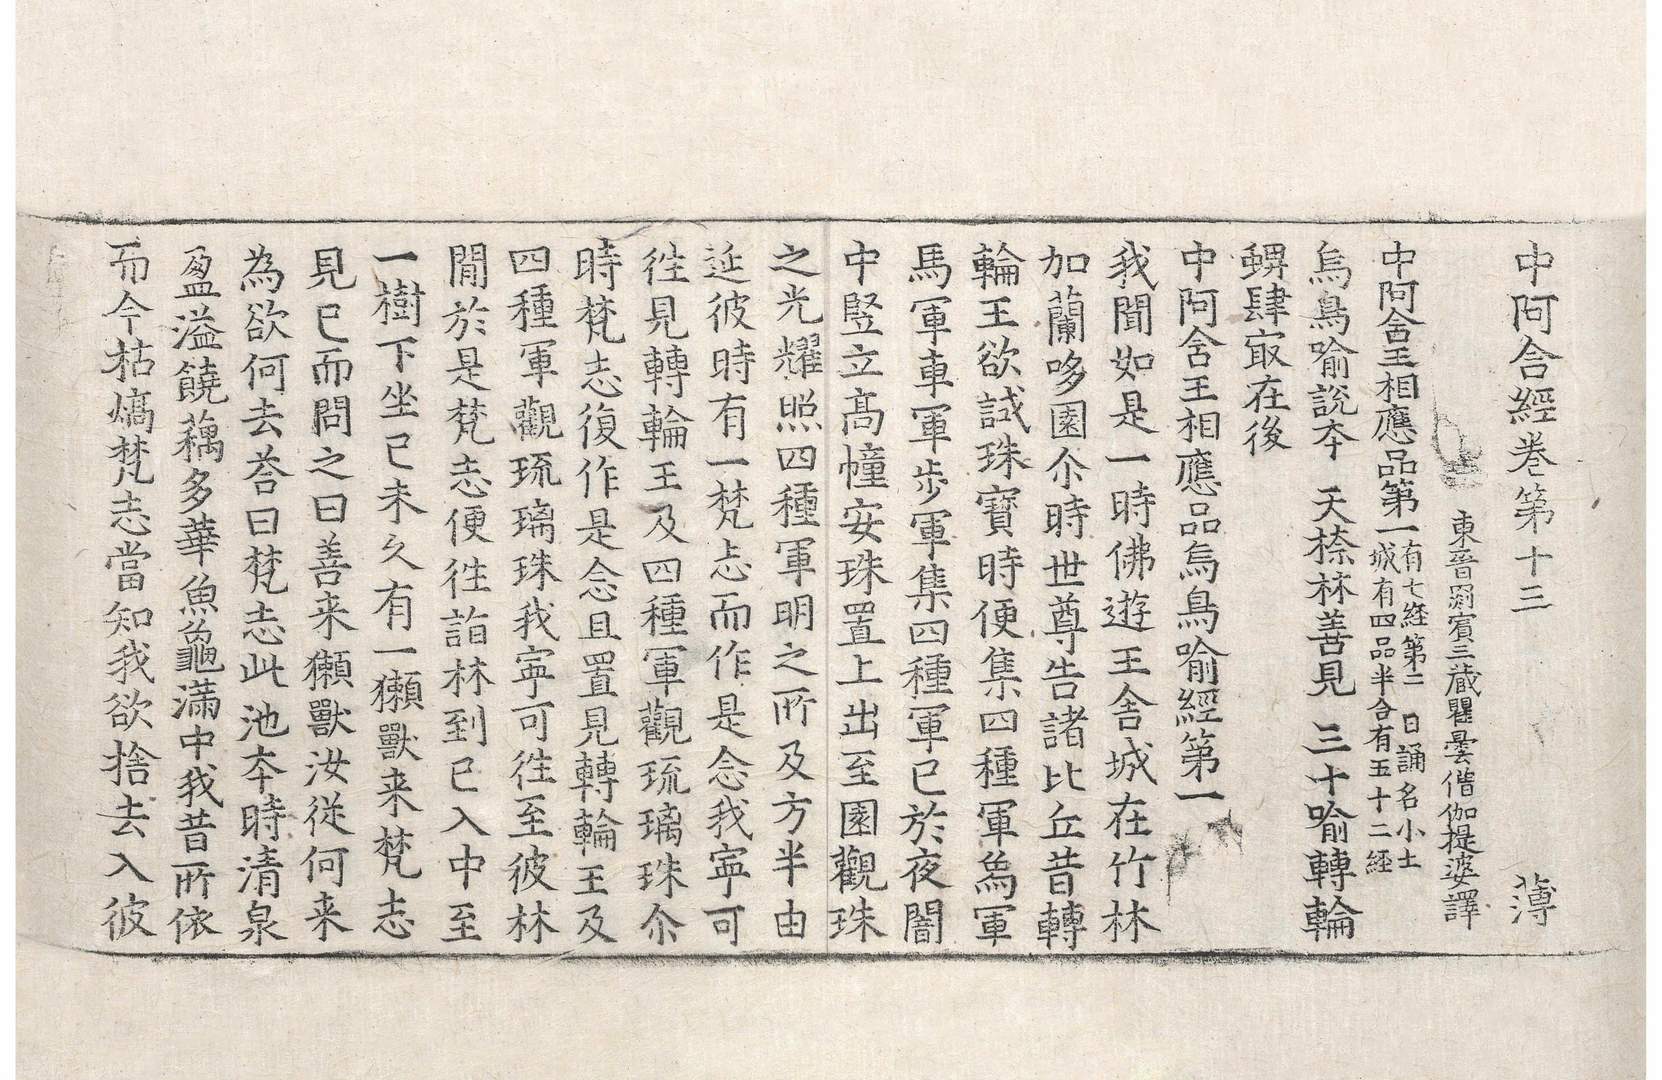 中阿含經卷第十三 薄
東晉罽賓三藏瞿曇僧伽提婆譯
中阿含王相應品第一有七経第二日誦名小土
城有四品半合有五十二経
烏鳥喻說夲 天㮈林善見 三十喻轉輪
蜱肆㝡在後
中阿含王相應品烏鳥喻經第一
我聞如是一時佛遊王舍城在竹林
加蘭哆園尒時世尊告諸比丘昔轉
輪王欲試珠寶時便集四種軍爲軍
馬軍車軍步軍集四種軍已於夜闇
中竪立高幢安珠置上出至園觀珠
之光耀照四種軍明之所及方半由
延彼時有一梵志而作是念我寜可
徃見轉輪王及四種軍觀琉璃珠尒
時梵志復作是念且置見轉輪王及
四種軍觀琉璃珠我寜可徃至彼林
閒於是梵志便徃詣林到已入中至
一樹下坐已未久有一獺獸来梵志
見已而問之曰善来獺獸汝從何来
為欲何去荅曰梵志此池夲時清泉
盈溢饒藕多華魚龜滿中我昔所依
而今枯熇梵志當知我欲捨去入彼